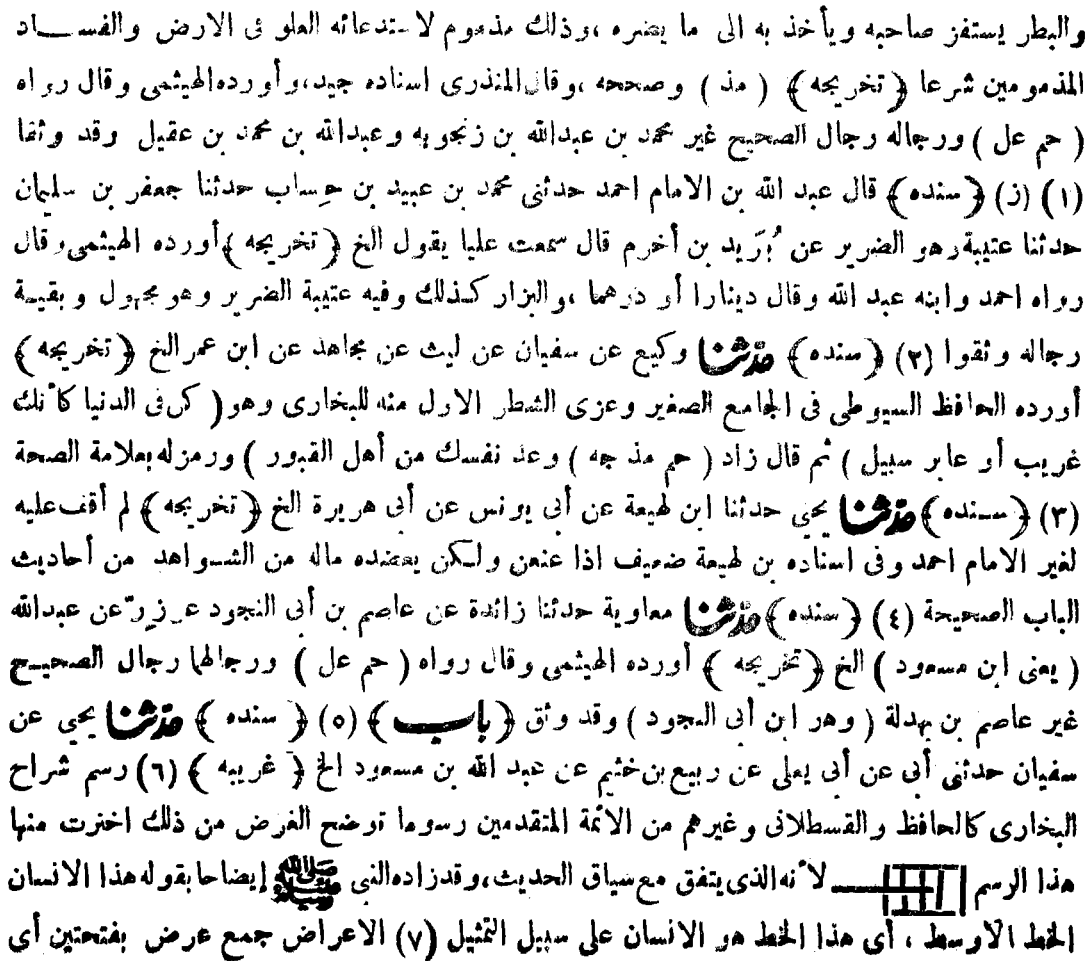 والبطر يستفز صاحبه ويأخذ به الى ما يضره ،وذلك مذموم لاستدعائه العلو فى الارض والفساد
المذمومين شرعا ﴿ تخريجه ﴾ ( مذ ) وصححه ،وقال المنذرى اسناده جيد،وأورده الهيثمى وقال رواه
( حم عل ) ورجاله رجال الصحيح غير محمد بن عبدالله بن زنجويه وعبدالله بن محمد بن عقيل وقد وثقا
(١) (ز) ﴿ سنده ﴾ قال عبد الله بن الامام احمد حدثنى محمد بن عبيد بن حِساب حدثنا جعفر بن سليمان
حدثنا عتيبة وهو الضرير عن بُرَيد بن أخرم قال سمعت عليا يقول الخ ﴿ تخريجه ﴾ أورده الهيثمى وقال
رواه احمد وابنه عبد الله وقال دينارا أو درهما ،والبزار كذلك وفيه عتيبة الضرير وهو مجهول وبقية
رجاله وثقوا (٢) ﴿ سنده ﴾ حدثنا وكيع عن سفيان عن ليث عن مجاهد عن ابن عمر الخ ﴿ تخريجه ﴾
أورده الحافظ السيوطى فى الجامع الصغير وعزى الشطر الاول منه للبخارى وهو ( كن فى الدنيا كأنك
غريب أو عابر سبيل ) ثم قال زاد ( حم مذ جه ) وعد نفسك من أهل القبور ) ورمز له بعلامة الصحة
(٣) ﴿ سنده ﴾ حدثنا يحيى حدثنا ابن لهيعة عن أبى يونس عن أبى هريرة الخ ﴿ تخريجه ﴾ لم أقف عليه
لغير الامام احمد وفى اسناده بن لهيعة ضعيف اذا عنعن ولكن يعضده ماله من الشواهد من أحاديث
الباب الصحيحة (٤) ﴿ سنده ﴾ حدثنا معاوية حدثنا زائدة عن عاصم بن أبى النجود عن زِرّ عن عبدالله
( يعنى ابن مسعود ) الخ ﴿ تخريجه ﴾ أورده الهيثمى وقال رواه ( حم عل ) ورجالها رجال الصحيح
غير عاصم بن بهدلة ( وهو ابن أبى النجود ) وقد وثق ﴿ باب ﴾ (٥) ﴿ سنده ﴾ حدثنا يحيى عن
سفيان حدثنى أبى عن أبى يعلى عن ربيع بن خثيم عن عبد الله بن مسعود الخ ﴿ غريبه ﴾ (٦) رسم شراح
البخارى كالحافظ والقسطلانى وغيرهم من الائمة المتقدمين رسوما توضح الغرض من ذلك اخترت منها
هذا الرسم لأنه الذى يتفق مع سياق الحديث،وقد زاده النبى ﷺ إيضاحا بقوله هذا الانسان
الخط الاوسط ، أى هذا الخط هو الانسان على سبيل التمثيل (٧) الاعراض جمع عرض بفتحتين أى